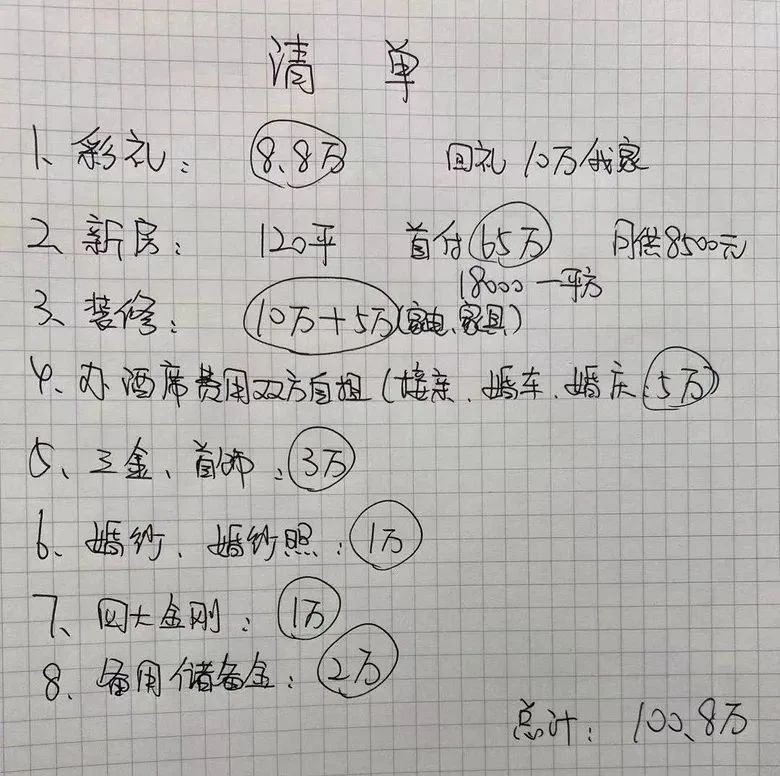 清 单
1、彩礼：8.8万 回礼10万我家
2、新房：120平 首付65万 月供8500元
18000一平方
3、装修：10万+5万(家电、家具)
4、办酒席费用双方自担(接亲、婚车、婚庆 5万)
5、三金、首饰：3万
6、婚纱、婚纱照：1万
7、四大金刚：1万
8、备用储备金：2万
总计：100.8万